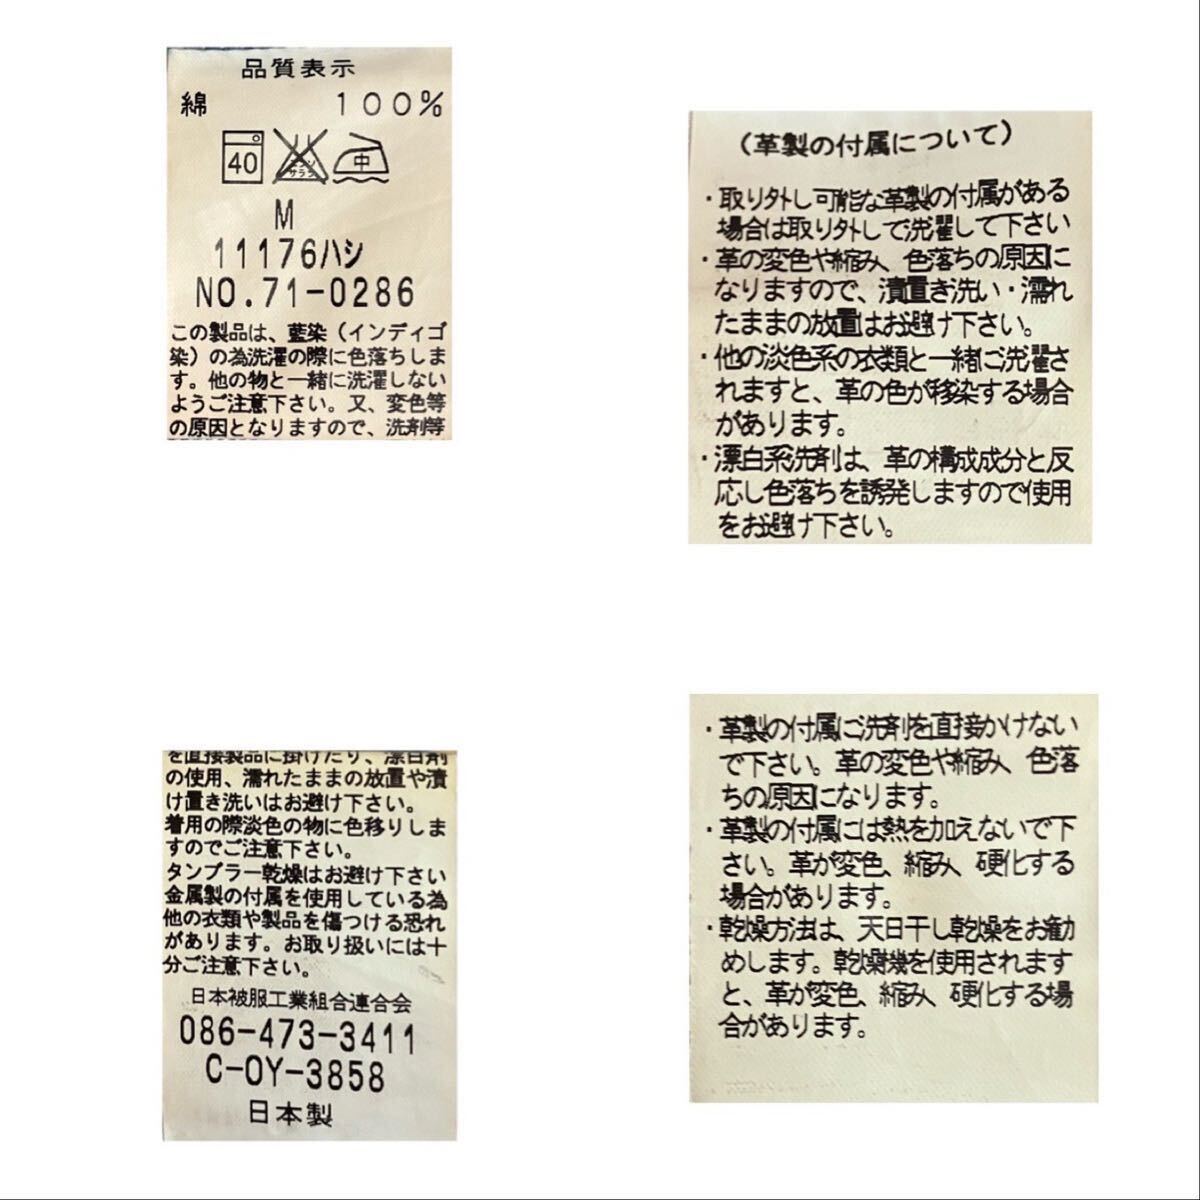 品質表示
綿 100%
40 エンソ サラシ 中
M
11176ハシ
NO.71-0286
この製品は、藍染（インディゴ
染）の為洗濯の際に色落ちしま
す。他の物と一緒に洗濯しない
ようご注意下さい。又、変色等
の原因となりますので、洗剤等
を直接製品に掛けたり、漂白剤
の使用、濡れたままの放置や漬
け置き洗いはお避け下さい。
着用の際淡色の物に色移りしま
すのでご注意下さい。
タンブラー乾燥はお避け下さい
金属製の付属を使用している為
他の衣類や製品を傷つける恐れ
があります。お取り扱いには十
分ご注意下さい。
日本被服工業組合連合会
086-473-3411
C-OY-3858
日本製
（革製の付属について）
・取り外し可能な革製の付属がある
場合は取り外して洗濯して下さい
・革の変色や縮み、色落ちの原因に
なりますので、漬置き洗い・濡れ
たままの放置はお避け下さい。
・他の淡色系の衣類と一緒に洗濯さ
れますと、革の色が移染する場合
があります。
・漂白系洗剤は、革の構成成分と反
応し色落ちを誘発しますので使用
をお避け下さい。
・革製の付属に洗剤を直接かけない
で下さい。革の変色や縮み、色落
ちの原因になります。
・革製の付属には熱を加えないで下
さい。革が変色、縮み、硬化する
場合があります。
・乾燥方法は、天日干し乾燥をお勧
めします。乾燥機を使用されます
と、革が変色、縮み、硬化する場
合があります。